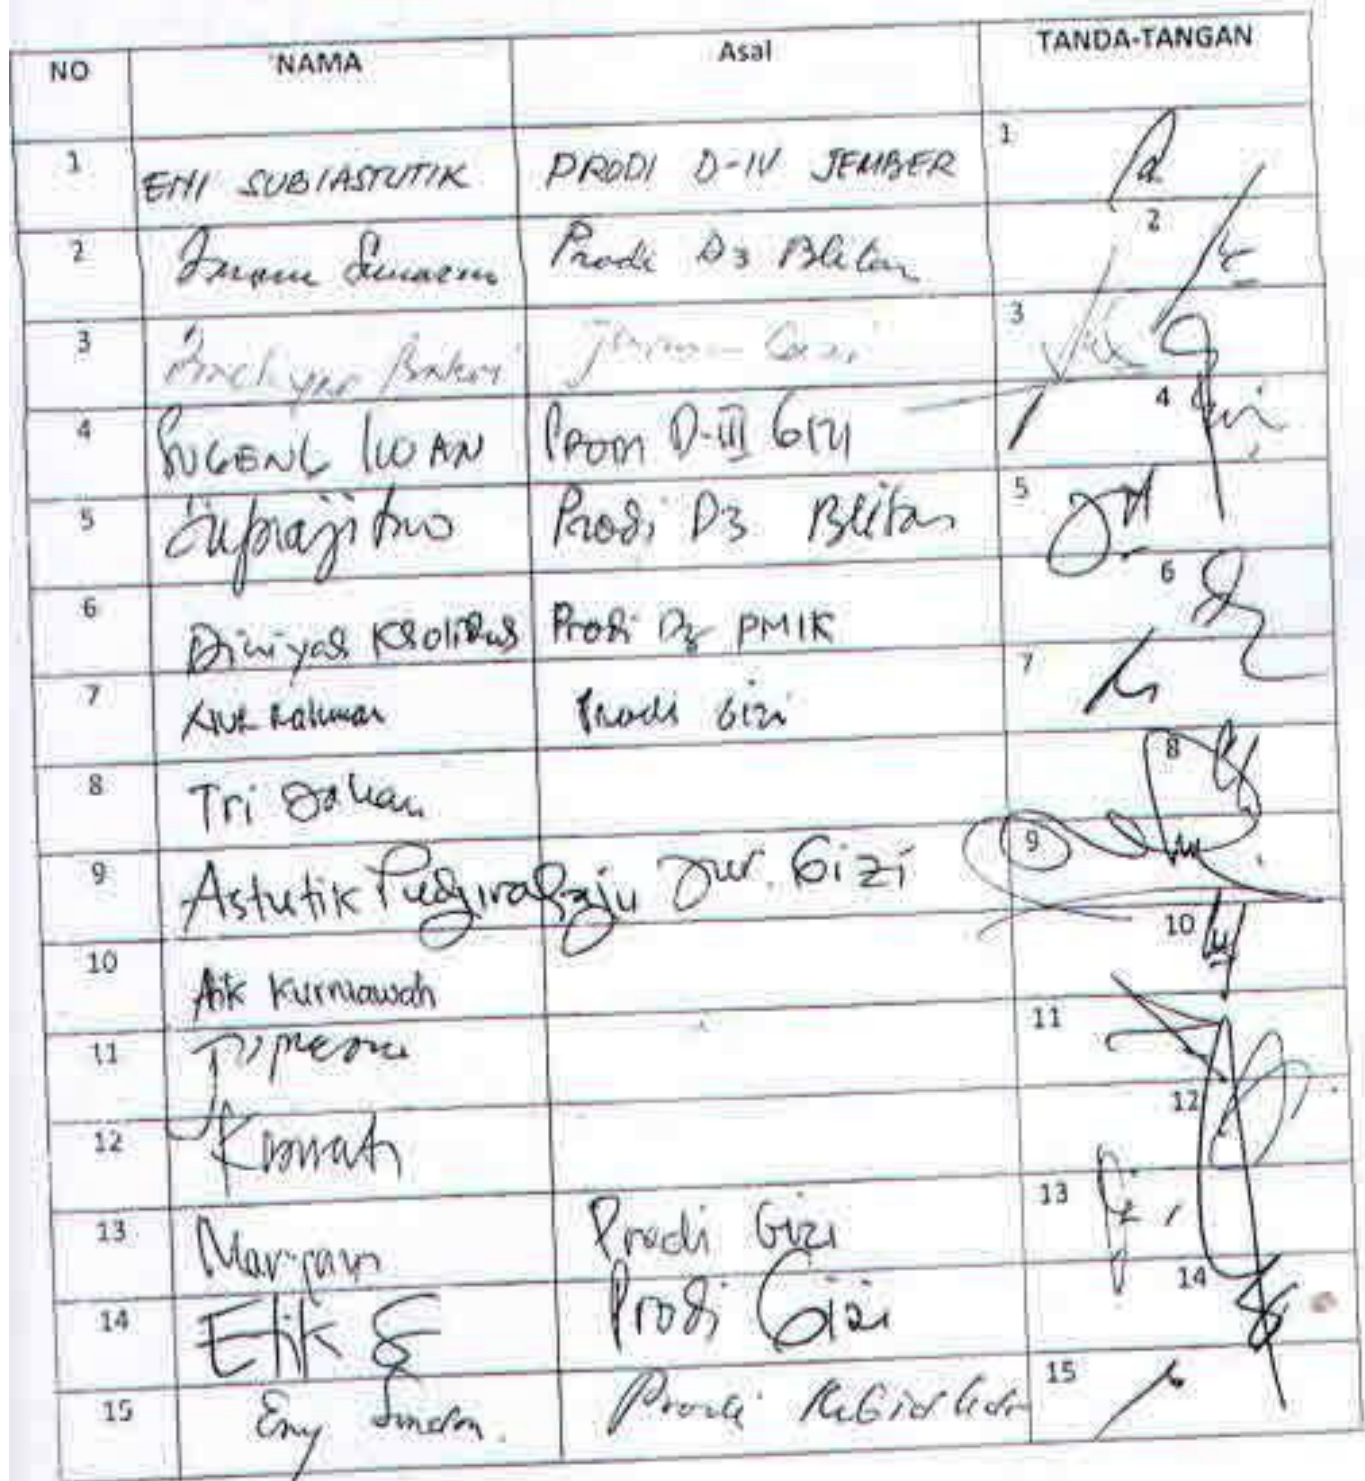 NO NAMA Asal TANDA-TANGAN
1 ENI SUBIASTUTIK PRODI D-IV JEMBER 1
2 Imam Sunarno Prodi D3 Blitar 2
3 Bakri 3
4 SUGENG IWAN PRODI D-III GIZI 4
5 Suprajitno Prodi D3 Blitar 5
6 Diniyah Kholidah Prodi D3 PMIK 6
7 Nur Rahman Prodi Gizi 7
8 Tri Johan 8
9 Astutik Pudjirahaju Jur. Gizi 9
10 Atik Kurniawati 10
11 11
12 12
13 Prodi Gizi 13
14 Etik S Prodi Gizi 14
15 Eny Prodi Kebidanan 15